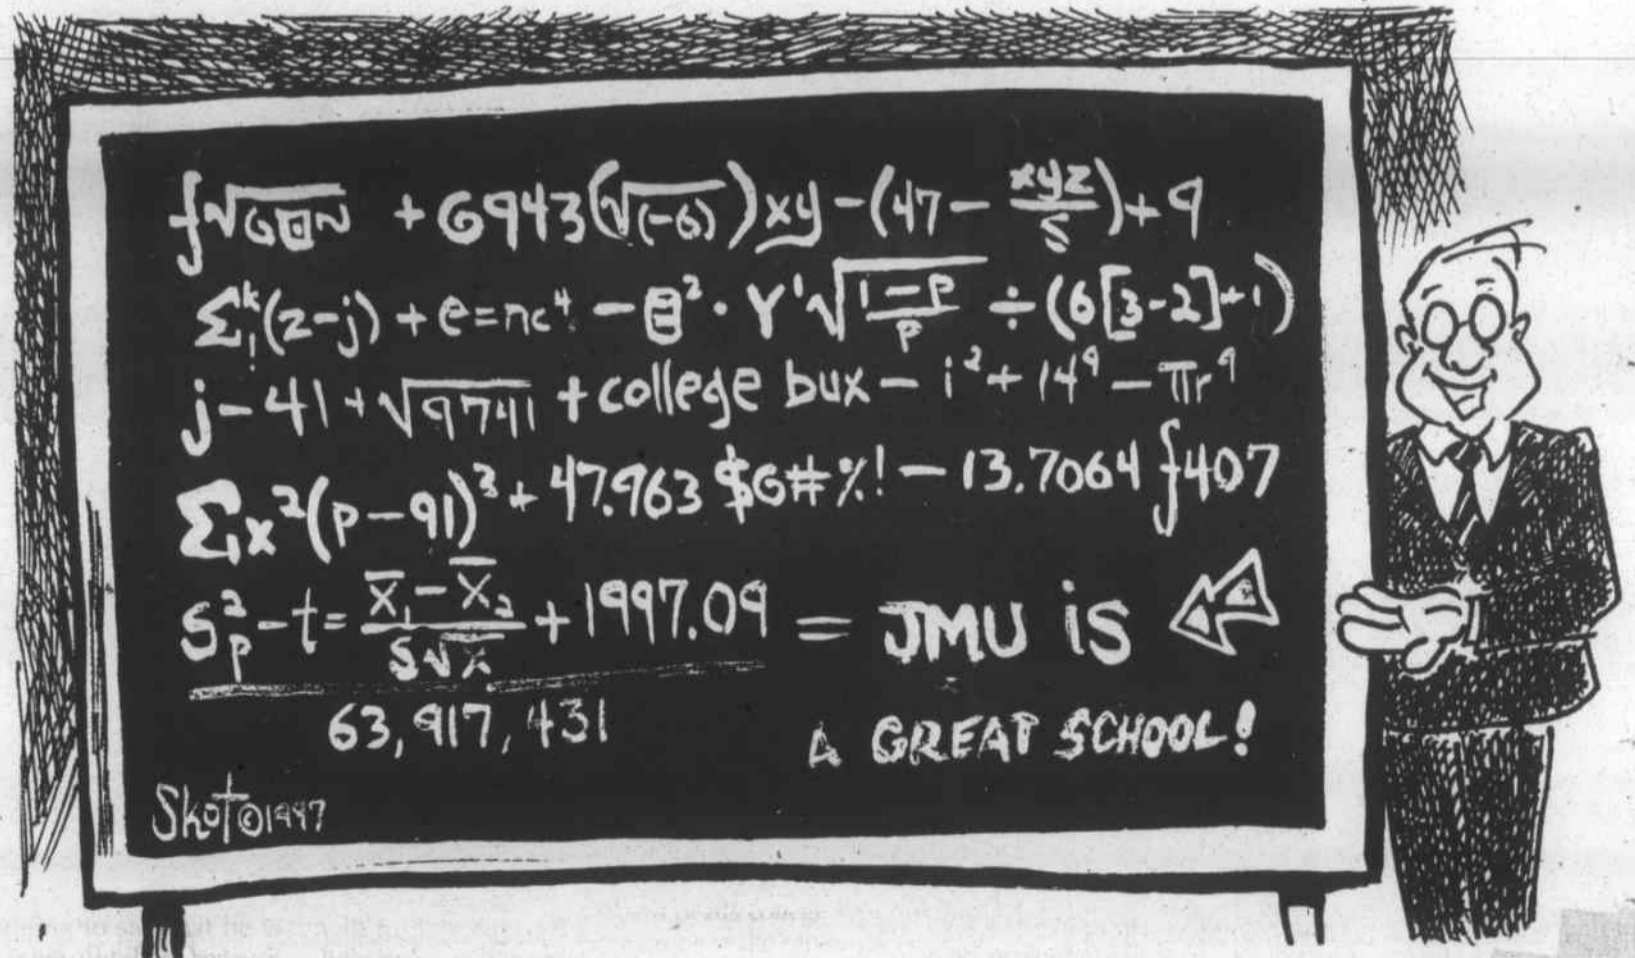 ∫√6⊡~ + 6943(√(-6))xy - (47 - xyz/5) + 9
Σᵢᵏ(z-j) + e=nc⁴ - θ² · Y'√(1-P/P) ÷ (6[3-2]+1)
j - 41 + √9741 + college bux - i² + 14⁹ - πr⁹
Σ₁x²(p-91)³ + 47.963 $6#%! - 13.7064 ∫407
S²p - t = X̄₁ - X̄₂ / S√x + 1997.09 = JMU is
63,917,431
A GREAT SCHOOL!
Skot©1997